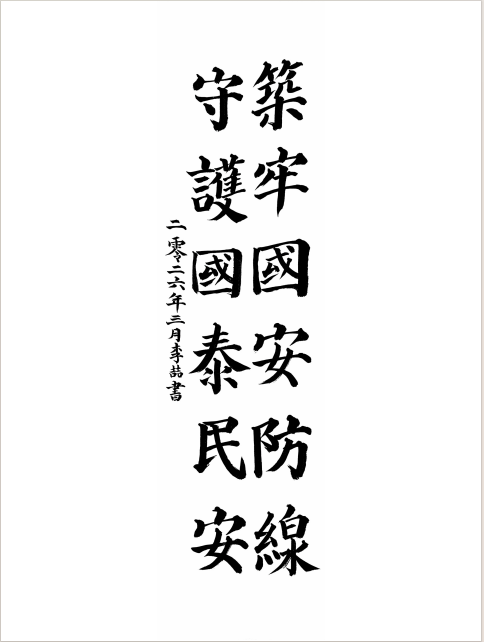 築牢國安防線
守護國泰民安
二零二六年三月李喆書